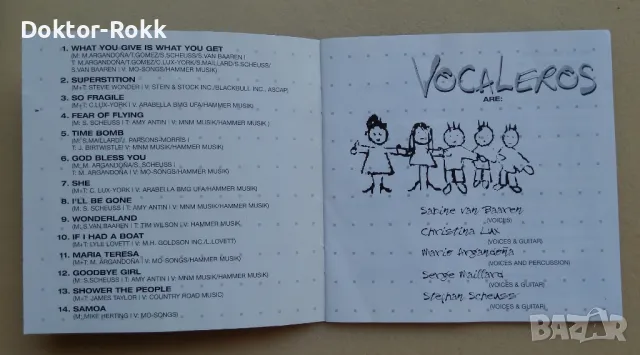 Doktor-Rokk
1. WHAT YOU GIVE IS WHAT YOU GET
(M: M.ARGANDOÑA/T.GOMEZ/S.SCHEUSS/S.VAN BAAREN I
T: M.ARGANDOÑA/T.GOMEZ/C.LUX-YORK/S.MAILLARD/S.SCHEUSS/
S.VAN BAAREN I V: MO-SONGS/HAMMER MUSIK)
2. SUPERSTITION
(M+T: STEVIE WONDER I V: STEIN & STOCK INC./BLACKBULL INC., ASCAP)
3. SO FRAGILE
(M+T: C.LUX-YORK I V: ARABELLA BMG UFA/HAMMER MUSIK)
4. FEAR OF FLYING
(M: S. SCHEUSS I T: AMY ANTIN I V: MNM MUSIK/HAMMER MUSIK)
5. TIME BOMB
(M: S.MAILLARD/J. PARSONS-MORRIS I
T: J. BIRTWISTLE I V: MNM MUSIK/HAMMER MUSIK)
6. GOD BLESS YOU
(M: M. ARGANDOÑA/S. SCHEUSS I
T: M. ARGANDOÑA I V: MO-SONGS/HAMMER MUSIK)
7. SHE
(M+T: C. LUX-YORK I V: ARABELLA BMG UFA/HAMMER MUSIK)
8. I'LL BE GONE
(M: S. SCHEUSS I T: AMY ANTIN I V: MNM MUSIK/HAMMER MUSIK)
9. WONDERLAND
(M: S.VAN BAAREN I T: TIM WILSON I V: HAMMER MUSIK)
10. IF I HAD A BOAT
(M+T: LYLE LOVETT I V: M.H. GOLDSON INC/L.LOVETT)
11. MARIA TERESA
(M+T: M. ARGANDOÑA I V: MO-SONGS/HAMMER MUSIK)
12. GOODBYE GIRL
(M: S.SCHEUSS I T: AMY ANTIN I V: MNM MUSIK/HAMMER MUSIK)
13. SHOWER THE PEOPLE
(M+T: JAMES TAYLOR I V: COUNTRY ROAD MUSIC)
14. SAMOA
(M: MIKE HERTING I V: MO-SONGS)
VOCALEROS
ARE:
Sabine van Baaren
(VOICES)
Christina Lux
(VOICES & GUITAR)
Mario Argandoña
(VOICES AND PERCUSSION)
Serge Maillard
(VOICES & GUITAR)
Stephan Scheuss
(VOICES & GUITAR)
BAZAR